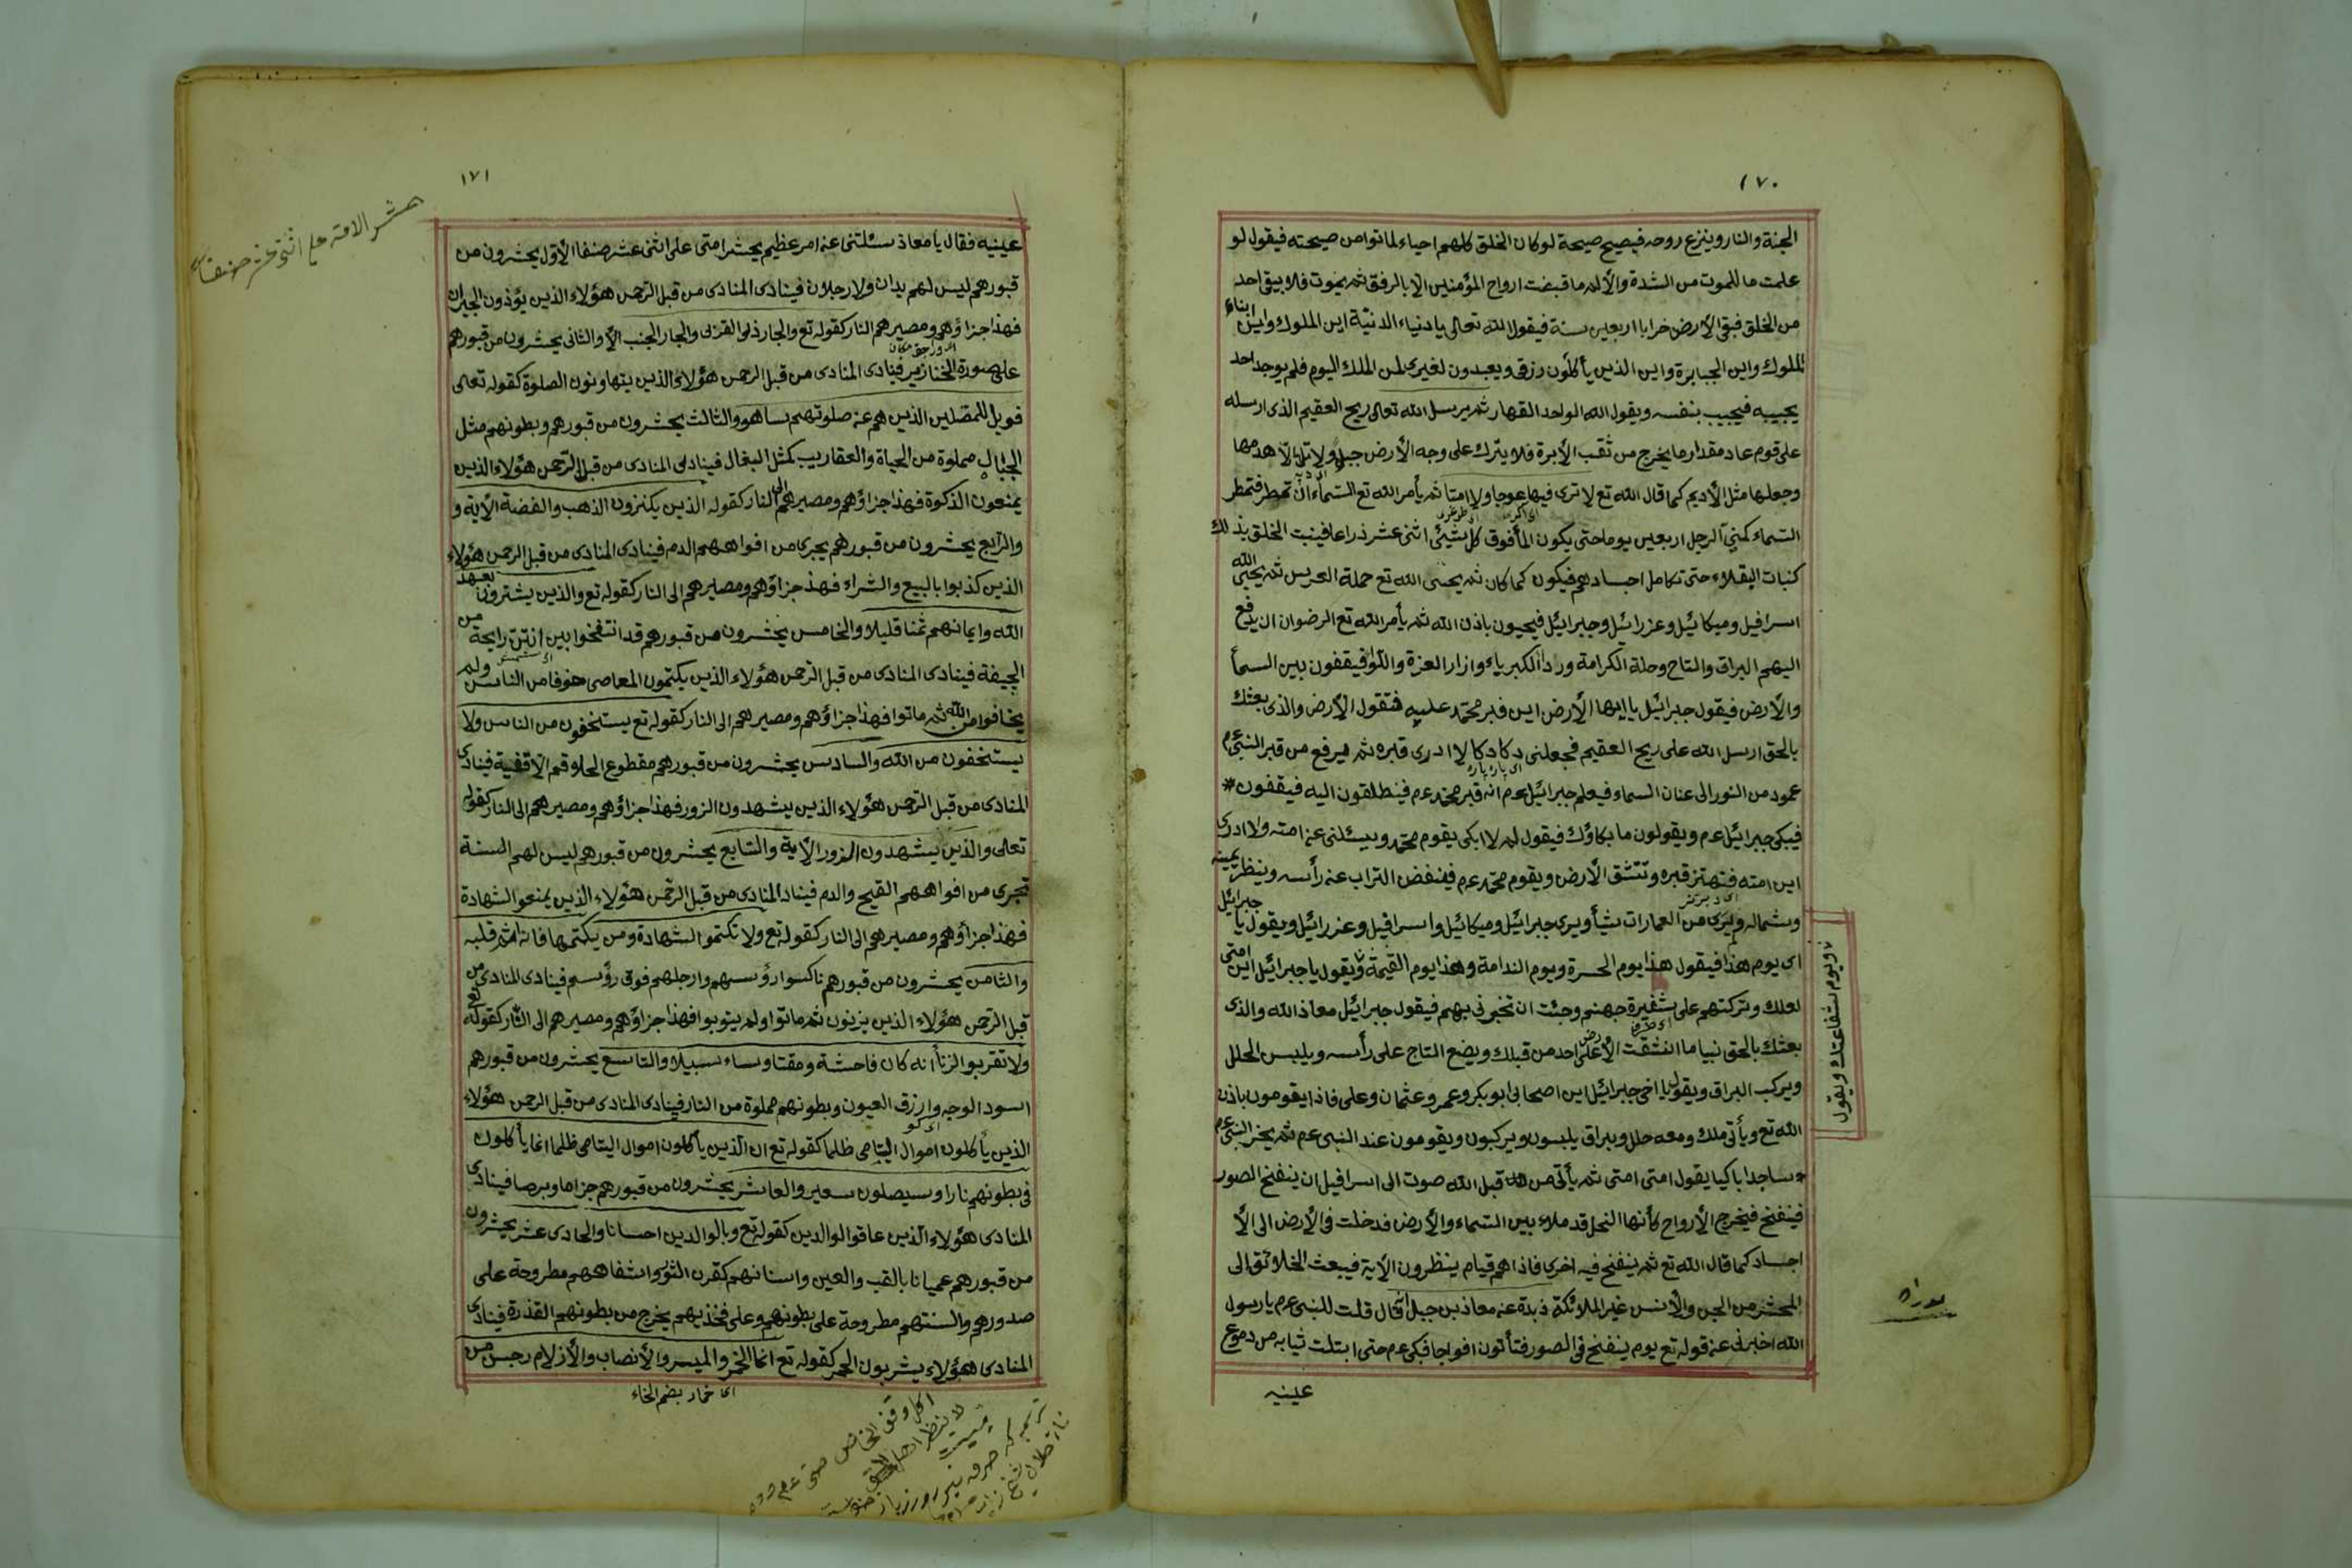 ١٧٠
الجنة والنار وينزع روحه فيصيح صيحة لو كان الخلق كلهم احياء لماتوا من صيحته فيقول لو
علمت ما للموت من الشدة والألم ما قبضت ارواح المؤمنين الا بالرفق ثم يموت فلا يبقى احد
من الخلق فبقى الارض خرابا اربعين سنة فيقول الله تعالى يا دنياء الدنية اين الملوك واين ابناء
الملوك واين الجبابرة واين الذين يأكلون رزقى ويعبدون لغيرى لمن الملك اليوم فلم يوجد احد
يجيبه فيجيب بنفسه ويقول الله الواحد القهار ثم يرسل الله تعالى ريح العقيم الذى ارسله
على قوم عاد مقدار ما يخرج من ثقب الأبرة فلا يترك على وجه الأرض جبل ولا تل الا هدمها
وجعلها مثل الأديم كما قال الله تع لا ترى فيها عوجا ولا امتا ثم يأمر الله تع السماء ان تمطر فتمطر
السماء كمنى الرجل اربعين يوما حتى يكون المأ فوق كل شيئ اثنى عشر ذراعا فينبت الخلق بذلك
كنبات البقلاء حتى تكامل اجسادهم فيكون كما كان ثم يحيى الله تع حملة العرش ثم يحيى الله
اسرافيل وميكائيل وعزرائيل وجبرائيل فيحيون باذن الله ثم يأمر الله تع الرضوان ان يدفع
اليهم البراق والتاج وحلة الكرامة ورداالكبرياء وازار العزة واللوا فيقفون بين السمأ
والأرض فيقول جبرائيل يا ايها الأرض اين قبر محمد عليه فتقول الأرض والذى بعثك
بالحق ارسل الله على ريح العقيم فجعلنى دكا دكا لا ادرى قبره ثم فيرفع من قبر النبى عم
عمود من النور الى عنان السماء فيعلم جبرائيل عم انه قبر محمد عم فينطلقون اليه فيقفون
فيبكى جبرائيل عم ويقولون ما بكاؤك فيقول لم لا ابكى يقوم محمد ويسئلنى عن امته ولا ادرى
اين امته فتهتز قبره وتنشق الأرض ويقوم محمد عم فينفض التراب عن رأسه وينظر يمينه
وشماله ولم يرى من العمارات شيأ ويرى جبرائيل وميكائيل واسرافيل وعزرائيل ويقول يا جبرائيل
اى يوم هذا فيقول هذا يوم الحسرة ويوم الندامة وهذا يوم القيمة ويقول يا جبرائيل اين امتى
لعلك وتركتهم على شفيرة جهنم وجئت ان تخبرنى بهم فيقول جبرائيل معاذ الله والذى
بعثك بالحق نبيا ما انشقت الأرض على احد من قبلك ويضع التاج على رأسه ويلبس الحلل
ويركب البراق ويقول يا اخى جبرائيل اين اصحابى ابو بكر وعمر وعثمان وعلى فاذا يقومون باذن
الله تع ويأتى ملك ومعه حلل وبراق يلبسون ويركبون ويقومون عند النبى عم ثم يخر النبى عم
ساجدا باكيا يقول امتى امتى ثم يأتى من قبل الله صوت الى اسرافيل ان ينفخ الصور
فينفخ فيخرج الأرواح كأنها النحل قد ملاء بين السماء والأرض فدخلت فى الأرض الى الأ
اجساد كما قال الله تع ثم ينفخ فيه اخرى فاذا هم قيام ينظرون الآية فيبعث الخلائق الى
المحشر من الجن والانس غير الملائكة ذبدة عن معاذ بن جبل انه قال قلت للنبى عم يا رسول
الله اخبرنى عن قوله تع يوم ينفخ فى الصور فتأتون افواجا فبكى عم حتى ابتلت ثيابه من دموع
عينيه
ويوم شفاعتك ويقول
١٧١
حشر الامة على اثنى عشر صنفا
عينيه فقال يا معاذ سئلتنى عن امر عظيم يحشر امتى على اثنى عشر صنفا الأول يحشرون من
قبورهم ليس لهم يدان ولا رجلان فينادى المنادى من قبل الرحمن هؤلاء الذين يؤذون الجيران
فهذا جزاؤهم ومصيرهم النار كقوله تع والجار ذى القربى والجار الجنب الآ والثانى يحشرون من قبورهم
على صورة الخنازير فينادى المنادى من قبل الرحمن هؤلاء الذين يتهاونون الصلوة كقوله تعالى
فويل للمصلين الذين هم عن صلوتهم ساهو والثالث يحشرون من قبورهم وبطونهم مثل
الجبال مملوة من الحياة والعقاريب كمثل البغال فينادى المنادى من قبل الرحمن هؤلاء الذين
يمنعون الذكوة فهذا جزاؤهم ومصيرهم الى النار كقوله الذين يكنزون الذهب والفضة الآية و
والرابع يحشرون من قبورهم يجرى من افواههم الدم فينادى المنادى من قبل الرحمن هؤلاء
الذين كذبوا بالبيع والشراء فهذ جزاؤهم ومصيرهم الى النار كقوله تع والذين يشترون بعهد
الله وايمانهم ثمنا قليلا والخامس يحشرون من قبورهم قد انتفخوا بين انتن رايحة من
الجيفة فينادى المنادى من قبل الرحمن هؤلاء الذين يكتمون المعاصى خوفا من الناس ولم
يخافوا من الله ثم ماتوا فهذا جزاؤهم ومصيرهم الى النار كقوله تع يستخفون من الناس ولا
يستخفون من الله والسادس يحشرون من قبورهم مقطوع الحلاوقم الاقفية فينادى
المنادى من قبل الرحمن هؤلاء الذين يشهدون الزور فهذا جزاؤهم ومصيرهم الى النار كقوله
تعالى والذين يشهدون الزور الآية والسابع يحشرون من قبورهم ليس لهم السنة
تجرى من افواههم القيح والدم فيناد المنادى من قبل الرحمن هؤلاء الذين يمنعو الشهادة
فهذا جزاؤهم ومصيرهم الى النار كقوله تع ولا تكتموا الشهادة ومن يكتمها فانه اثم قلبه
والثامن يحشرون من قبورهم ناكسوا رؤسهم وارجلهم فوق رؤسهم فينادى المنادى من
قبل الرحمن هؤلاء الذين يزنون ثم ماتوا ولم يتوبوا فهذا جزاؤهم ومصيرهم الى النار كقوله تع
ولا تقربوا الزنا أنه كان فاحشة ومقتا وساء سبيلا والتاسع يحشرون من قبورهم
اسود الوجه وازرق العيون وبطونهم مملوة من النار فينادى المنادى من قبل الرحمن هؤلاء
الذين يأكلون اموال اليتامى ظلما كقوله تع ان الذين يأكلون اموال اليتامى ظلما انما يأكلون
فى بطونهم نارا وسيصلون سعير والعاشر يحشرون من قبورهم جزاما وبرصا فينادى
المنادى هؤلاء الذين عاقوا لوالدين كقوله تع وبالوالدين احسانا والحادى عشر يحشرون
من قبورهم عميانا بالقب والعين واسنانهم كقرن الثور واشفاههم مطروحة على
صدورهم والسنتهم مطروحة على بطونهم وعلى فخذيهم يخرج من بطونهم القذرة فينادى
المنادى هؤلاء يشربون الخمر كقوله تع انما الخمر والميسر والأنصاب والأزلام رجس من
اى خمار بضم الخاء